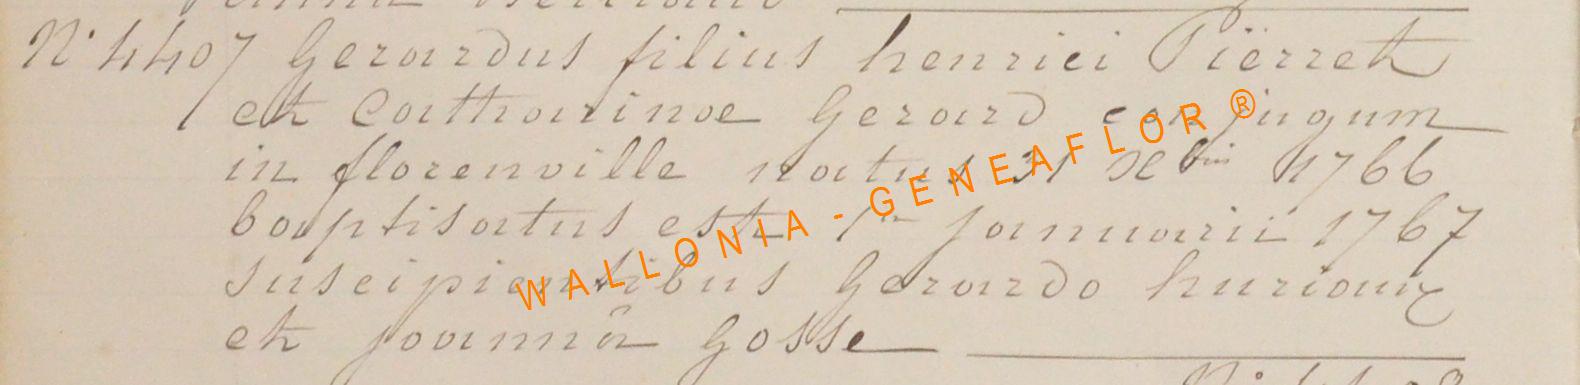 N° 4407 Gerardus filius henrici Piërret
et Catharinoe Gerard conjugum
in florenville natus 31 Xbris 1766
baptisatus est 1er januarii 1767
suscipientibus Gerardo huriaux
et joannâ Gosse
WALLONIA - GENEAFLOR ®